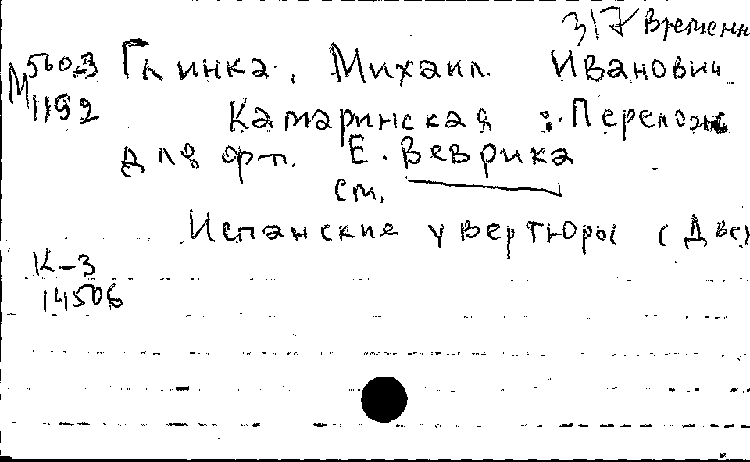 317 Временн
М 560-3 Глинка, Михаил Иванович
1192 Камаринская : Перелож
для фп. Е. Веврика
см.
Испанские увертюры (Две)
К-3
14506